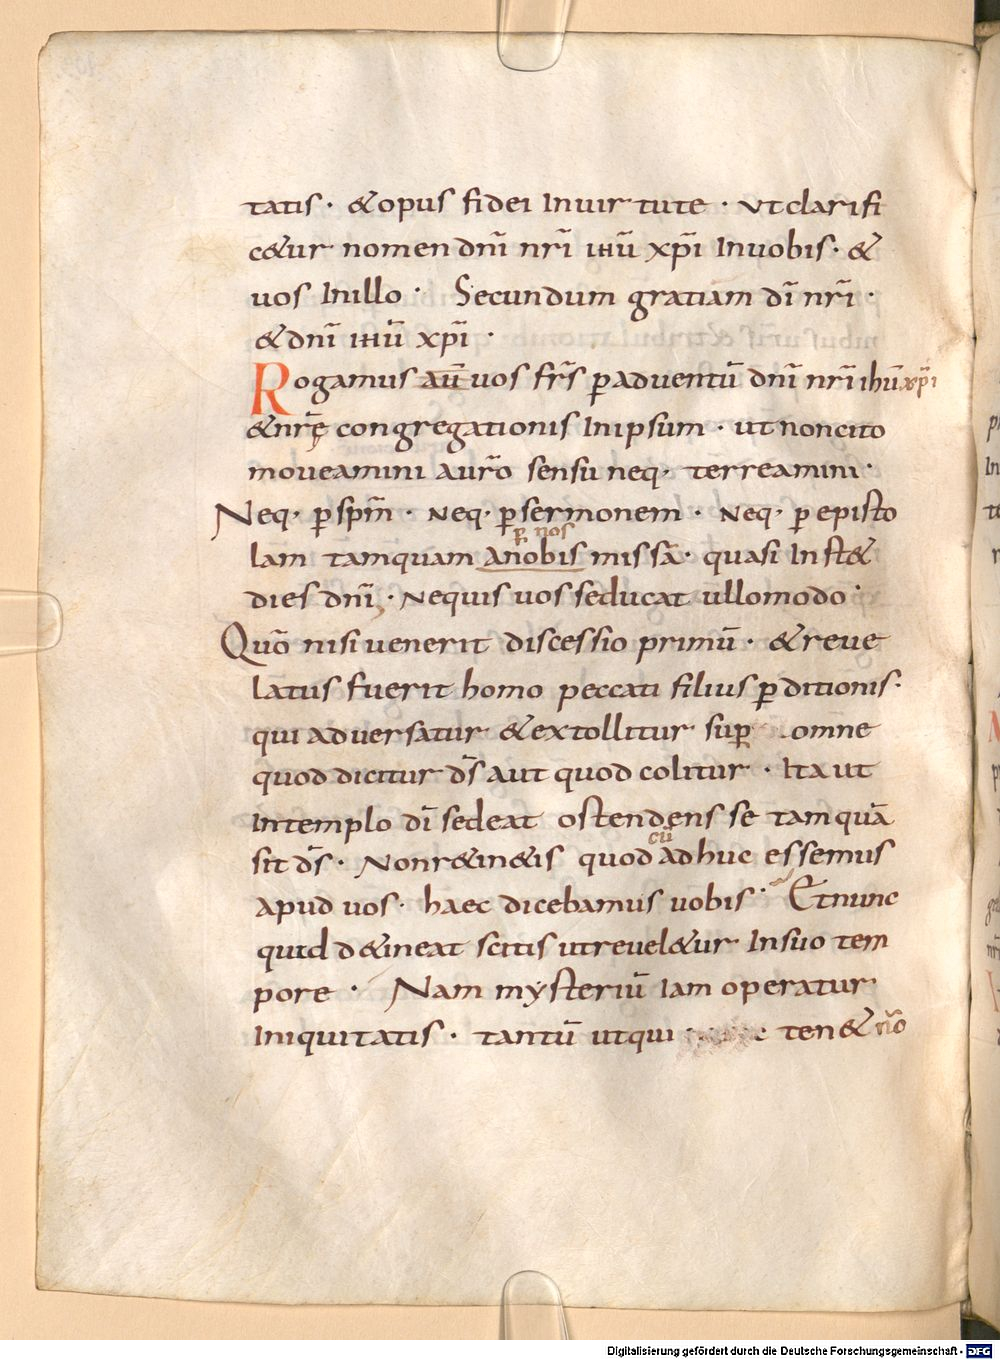 tatis · & opus fidei Inuirtute · vt clarifi
c&ur nomen dn̄i nr̄i ihū xp̄i Inuobis · &
uos Inillo · Secundum gratiam dī nr̄i ·
& dn̄i ihū xp̄i ·
Rogamus aū uos fr̄s ꝑ aduentū dn̄i nr̄i ihū xp̄i
& nr̄ę congregationis Inipsum · ut noncito
moueamini aur̄o sensu neq· terreamini ·
Neq· ꝑ spm̄ · Neq· ꝑ sermonem · Neq· ꝑ episto
p̱ nos
lam tamquam anobis missā · quasi Inst&
dies dn̄i · Nequis uos seducat ullomodo ·
Quō nisi uenerit discessio primū · & reue
latus fuerit homo peccati filius ꝑditionis ·
qui aduersatur & extollitur suꝑ omne
quod dicitur ds̄ aut quod colitur · Ita ut
Intemplo dī sedeat ostendens se tamquā
sit ds̄ · Nonr&in&is quod cū adhuc essemus
apud uos · haec dicebamus uobis · Etnunc
quid d&ineat scitis utreuel&ur Insuo tem
pore · Nam mẏsteriū Iam operatur
Iniquitatis · tantū utqui ten& n̄o